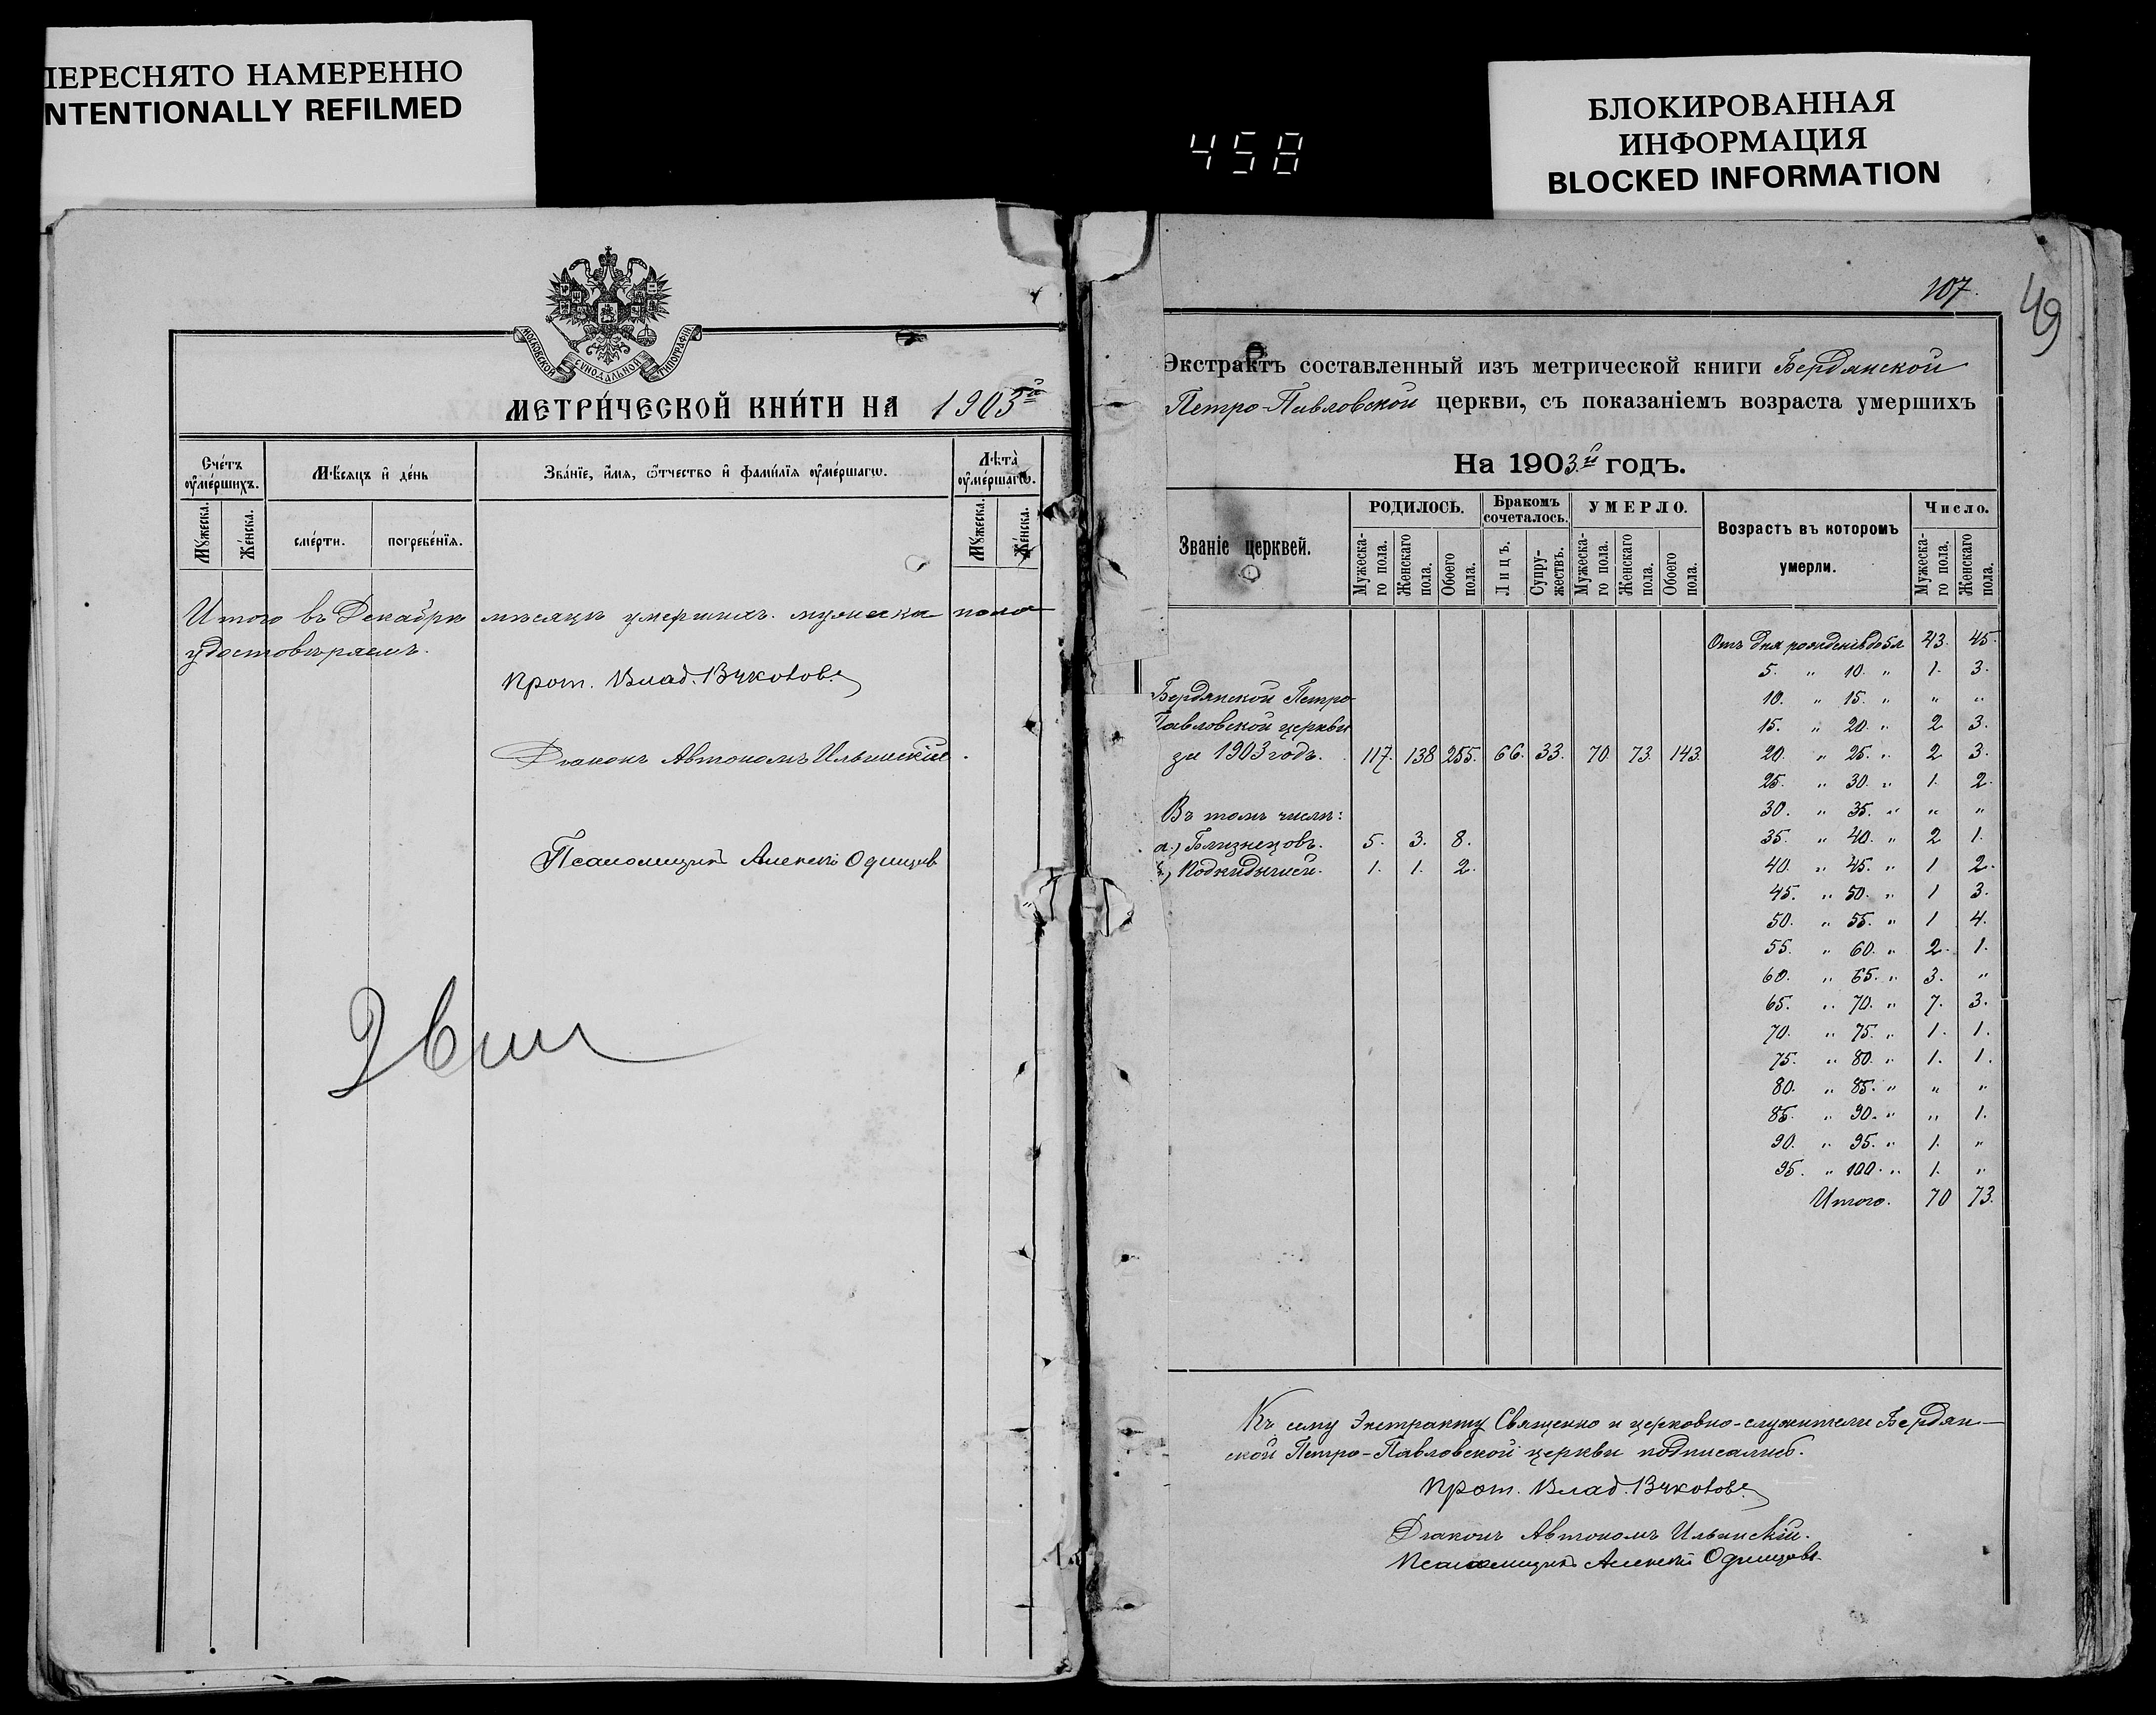 ПЕРЕСНЯТО НАМЕРЕННО
INTENTIONALLY REFILMED
458
БЛОКИРОВАННАЯ
ИНФОРМАЦИЯ
BLOCKED INFORMATION
МОСКОВСКОЙ СѴНОДАЛЬНОЙ ТИПОГРАФІИ
МЕТРИ́ЧЕСКОЙ КНИ́ГИ НА 1903й
Сче́тъ ᲂу҆ме́ршихъ.
Мꙋ́жеска.
Же́нска.
Мѣ́сяцъ и҆ де́нь
сме́рти.
погребе́нїѧ.
Зва́нїе, и҆́мѧ, ѻ҆́тчество и҆ фами́лїѧ ᲂу҆ме́ршагѡ.
Лѣта̀ ᲂу҆ме́ршагѡ.
Мꙋ́жеска.
Же́нска.
Итого въ Декабрѣ мѣсяцѣ умершихъ мужеска пола
удостовѣряемъ.
Прот. Влад.
Діаконъ Автономъ Ильинскій.
Псаломщикъ Алексѣй Одинцовъ
107.
49
Экстрактъ составленный изъ метрической книги Бердянской
Петро-Павловской церкви, съ показаніемъ возраста умершихъ
На 1903й годъ.
Званіе церквей.
РОДИЛОСЬ.
Мужеска-го пола.
Женскаго пола.
Обоего пола.
Бракомъ сочеталось.
Лицъ.
Супру-жествъ.
УМЕРЛО.
Мужеска-го пола.
Женскаго пола.
Обоего пола.
Возрастъ въ которомъ умерли.
Число.
Мужеска-го пола.
Женскаго пола.
Бердянской Петро-
Павловской церкви
за 1903 годъ. 117. 138 255. 66. 33. 70. 73. 143.
Въ томъ числѣ:
а.) Близнецовъ. 5. 3. 8.
б.) Подкидышей. 1. 1. 2.
Отъ дня рожденія до 5 л 43. 45.
5. " 10. " 1. 3.
10. " 15. " " "
15. " 20. " 2 3.
20. " 25. " 2 3.
25. " 30. " 1. 2.
30. " 35. " " "
35. " 40. " 2 1.
40. " 45. " 1 2.
45. " 50. " 1 3.
50. " 55. " 1 4.
55. " 60. " 2. 1.
60. " 65. " 3. "
65. " 70. " 7. 3.
70. " 75. " 1. 1.
75. " 80. " 1. 1.
80. " 85. " " "
85. " 90. " " 1.
90. " 95. " 1. "
95. " 100. " 1. "
Итого. 70 73.
Къ сему Экстракту Священно и церковно-служители Бердян-
ской Петро-Павловской церкви подписались.
Прот. Влад.
Діаконъ Автономъ Ильинскій.
Псаломщикъ Алексѣй Одинцовъ.